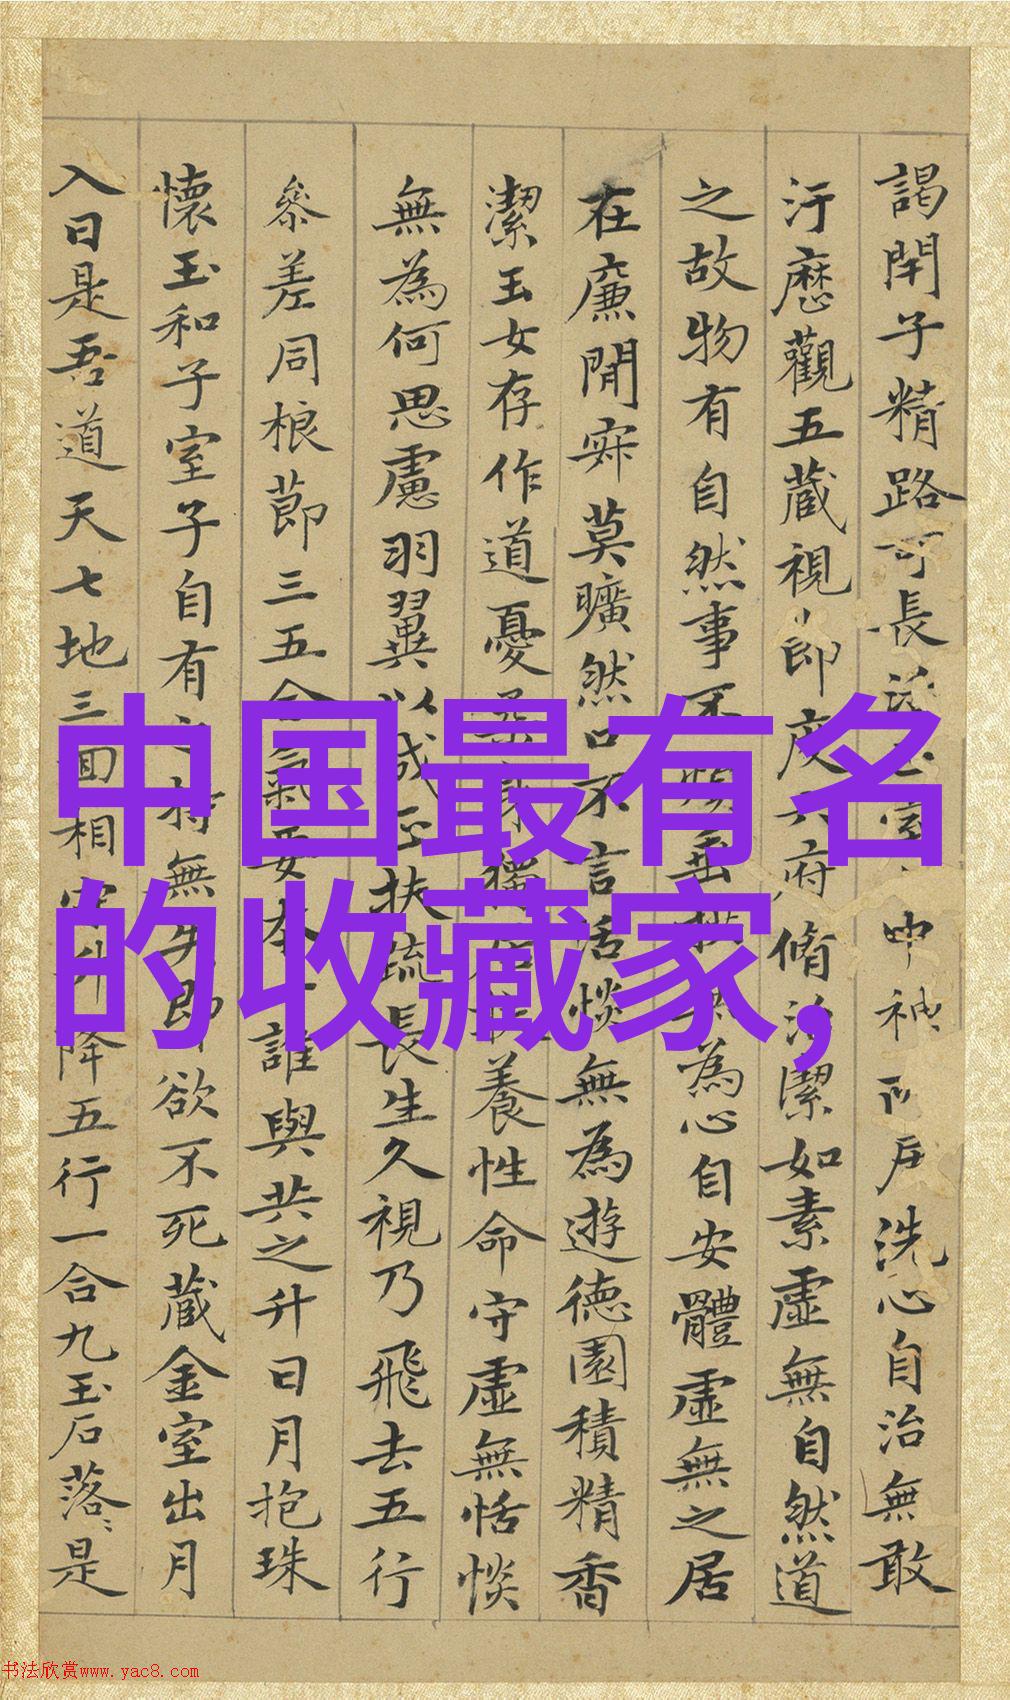 謁開子精路可長
洗心自治無敢
汙歷觀五藏視
節度
府脩治潔如素虛無自然道
之故物有自然事不煩垂拱無為心自安體虛無之居
在廉閒寂莫曠然口不言恬惔無為遊德園積精香
潔玉女存作道憂柔身獨居扶養性命守虛無恬惔
無為何思慮羽翼以成正扶疏長生久視乃飛去五行
參差同根節三五合氣要本一誰與共之升日月抱珠
懷玉和子室子自有之持無失即欲不死藏金室出月
入日是吾道天七地三回相守升降五行一合九玉石落〻是
中国最有名
的收藏家,
书法欣赏www.yac8.com